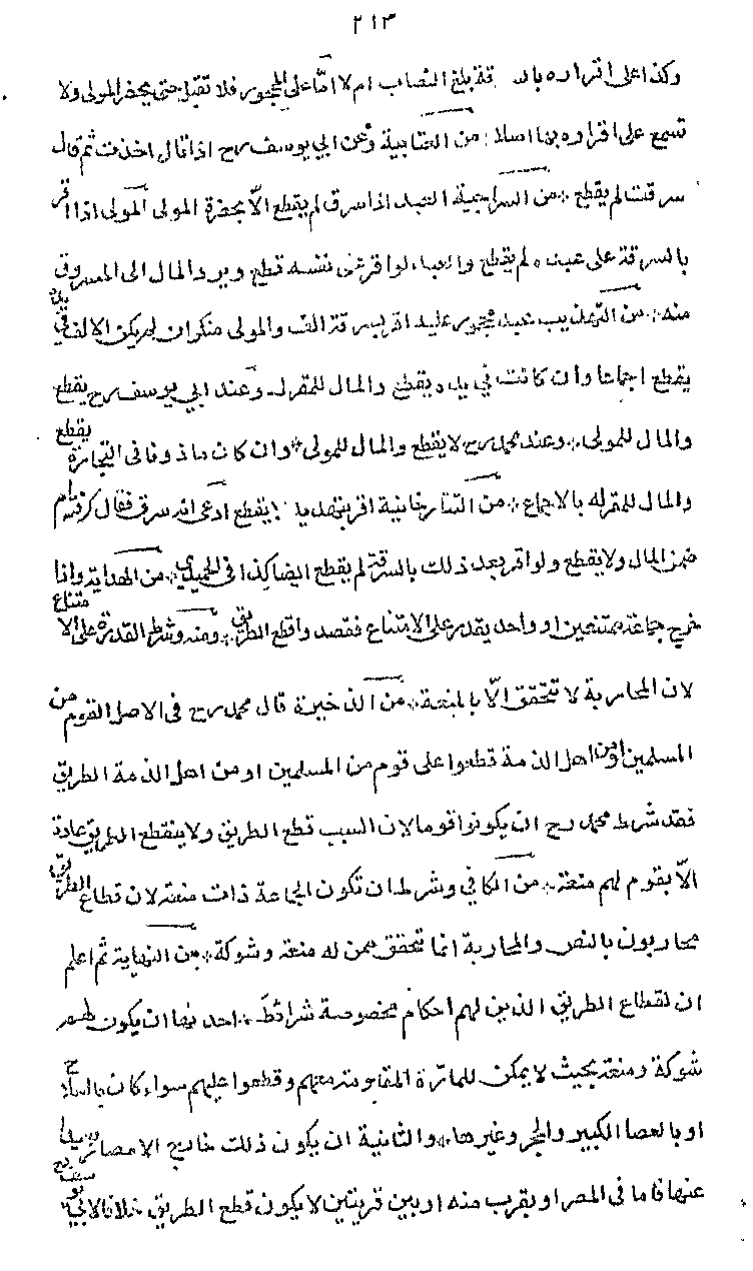 ٢١٣
وكذا على اقراره بالسرقة بلغ النصاب ام لا امّا على المحجور فلا تقبل حتى يحضر المولى ولا
تسمع على اقراره بها اصلا من العتابية وعن ابي يوسف رح اذا قال اخذت ثم قال
سرقت لم يقطع من السراجية العبد اذا سرق لم يقطع الّا بحضرة المولى المولى اذا اقر
بالسرقة على عبده لم يقطع والعبد لو اقر على نفسه قطع ويرد المال الى المسروق
منه من التهذيب عبد محجور عليه اقر بسرقة الف والمولى منكر ان لم يكن الالف في يده
يقطع اجماعا وان كانت في يده يقطع والمال للمقر له وعند ابي يوسف رح يقطع
والمال للمولى وعند محمد رح لا يقطع والمال للمولى وان كان ماذونا في التجارة يقطع
والمال للمقر له بالاجماع من التتارخانية اقر بتهديد لا يقطع ادعى انه سرق فقال
ضمن المال ولا يقطع ولو اقر بعد ذلك بالسرقة لم يقطع ايضا كذا في الحميدي من الهداية واذا
خرج جماعة ممتنعين او واحد يقدر على الامتناع فقصدوا قطع الطريق ومنه وشرط القدرة على الامتناع
لان المحاربة لا تتحقق الّا بالمنعة من الذخيرة قال محمد رح في الاصل القوم من
المسلمين او من اهل الذمة قطعوا على قوم من المسلمين او من اهل الذمة الطريق
فقد شرط محمد رح ان يكونوا قوما لان السبب قطع الطريق ولا ينقطع الطريق عادة
الّا بقوم لهم منعة من الكافي وشرط ان تكون الجماعة ذات منعة لان قطاع الطريق
محاربون بالنص والمحاربة انما تتحقق بمن له منعة وشوكة من النهاية ثم اعلم
ان لقطاع الطريق الذين لهم احكام مخصوصة شرائط احدها ان يكون لهم
شوكة ومنعة بحيث لا يمكن للمارّة المقاومة معهم وقطعوا عليهم سواء كان بالسلاح
او بالعصا الكبير والحجر وغيرها والثانية ان يكون ذلك خارج الامصار بعيدا
عنها فاما في المصر او بقرب منه او بين قريتين لا يكون قطع الطريق خلافا لابي يوسف رح